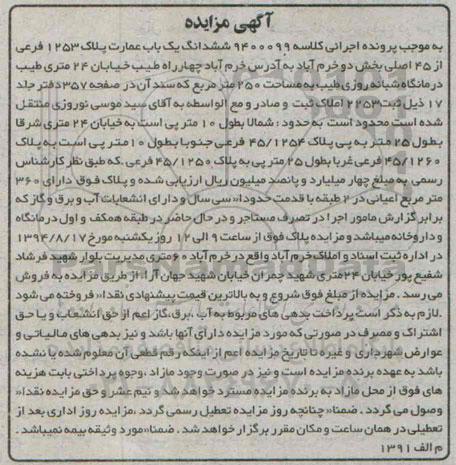 آگهی مزایده
به موجب پرونده اجرائی کلاسه ۹۴۰۰۰۹۹ ششدانگ یک باب عمارت پلاک ۱۲۵۳ فرعی
از ۴۵ اصلی بخش دو خرم آباد به آدرس خرم آباد چهارراه طیب خیابان ۲۴ متری طیب
درمانگاه شبانه روزی طیب به مساحت ۲۵۰ متر مربع که سند آن در صفحه ۳۵۷ دفتر جلد
۱۷ ذیل ثبت ۲۲۵۳ املاک ثبت و صادر و مع الواسطه به آقای سید موسی نوروزی منتقل
شده است محدود است به حدود: شمالا بطول ۱۰ متر پی است به خیابان ۲۴ متری شرقا
بطول ۲۵ متر به پی پلاک ۴۵/۱۲۵۴ فرعی جنوبا بطول ۱۰ متر پی است به پلاک
۴۵/۱۲۶۰ فرعی غربا بطول ۲۵ متر پی به پلاک ۴۵/۱۲۵۰ فرعی .که طبق نظر کارشناس
رسمی به مبلغ چهار میلیارد و پانصد میلیون ریال ارزیابی شده و پلاک فوق دارای ۳۶۰
متر مربع اعیانی در ۲ طبقه با قدمت حدودا» سی سال و دارای انشعابات آب و برق و گاز که
برابر گزارش مامور اجرا در تصرف مستاجر و در حال حاضر در طبقه همکف و اول درمانگاه
و داروخانه میباشد و مزایده پلاک فوق از ساعت ۹ الی ۱۲ روز یکشنبه مورخ ۱۳۹۴/۸/۱۷
در اداره ثبت اسناد و املاک خرم آباد واقع در خرم آباد ۶۰ متری مدیریت بلوار شهید فرشاد
شفیع پور خیابان ۲۴ متری شهید چمران خیابان شهید جهان آرا، از طریق مزایده به فروش
می رسد . مزایده از مبلغ فوق شروع و به بالاترین قیمت پیشنهادی نقدا» فروخته می شود
.لازم به ذکر است پرداخت بدهی های مربوط به آب ،برق،گاز اعم از حق انشعاب و یا حق
اشتراک و مصرف در صورتی که مورد مزایده دارای آنها باشد و نیز بدهی های مالیاتی و
عوارض شهرداری و غیره تا تاریخ مزایده اعم از اینکه رقم قطعی آن معلوم شده یا نشده
باشد به عهده برنده مزایده است و نیز در صورت وجود مازاد ،وجوه پرداختی بابت هزینه
های فوق از محل مازاد به برنده مزایده مسترد خواهد شد و نیم عشر و حق مزایده نقدا»
وصول می گردد . ضمنا» چنانچه روز مزایده تعطیل رسمی گردد ،مزایده روز اداری بعد از
تعطیلی در همان ساعت و مکان مقرر برگزار خواهد شد . ضمنا» مورد وثیقه بیمه نمیباشد .
م الف ۱۳۹۱